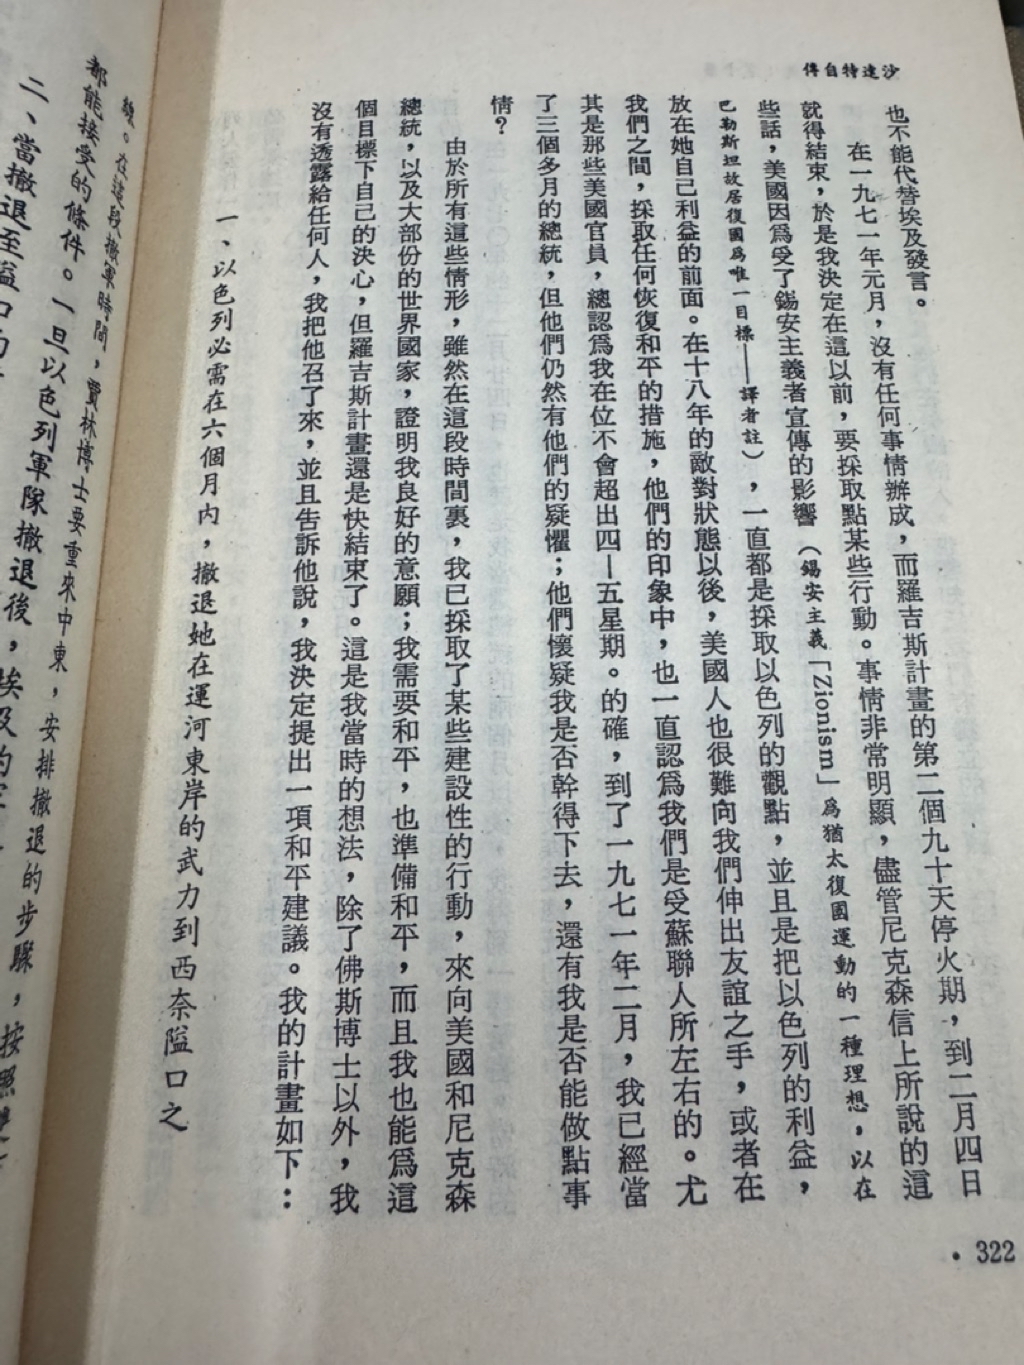 沙達特自傳
也不能代替埃及發言。
在一九七一年元月，沒有任何事情辦成，而羅吉斯計畫的第二個九十天停火期，到二月四日
就得結束，於是我決定在這以前，要採取點某些行動。事情非常明顯，儘管尼克森信上所說的這
些話，美國因爲受了錫安主義者宣傳的影響（錫安主義「Zionism」爲猶太復國運動的一種理想，以在
巴勒斯坦故居復國爲唯一目標——譯者註），一直都是採取以色列的觀點，並且是把以色列的利益，
放在她自己利益的前面。在十八年的敵對狀態以後，美國人也很難向我們伸出友誼之手，或者在
我們之間，採取任何恢復和平的措施，他們的印象中，也一直認爲我們是受蘇聯人所左右的。尤
其是那些美國官員，總認爲我在位不會超出四—五星期。的確，到了一九七一年二月，我已經當
了三個多月的總統，但他們仍然有他們的疑懼；他們懷疑我是否幹得下去，還有我是否能做點事
情？
由於所有這些情形，雖然在這段時間裏，我已採取了某些建設性的行動，來向美國和尼克森
總統，以及大部份的世界國家，證明我良好的意願；我需要和平，也準備和平，而且我也能爲這
個目標下自己的決心，但羅吉斯計畫還是快結束了。這是我當時的想法，除了佛斯博士以外，我
沒有透露給任何人，我把他召了來，並且告訴他說，我決定提出一項和平建議。我的計畫如下：
一、以色列必需在六個月內，撤退她在運河東岸的武力到西奈隘口之
線。在這段撤軍時間，賈林博士要重來中東，安排撤退的步驟，按照雙方
都能接受的條件。一旦以色列軍隊撤退後，埃及的
二、當撤退至隘口
• 322